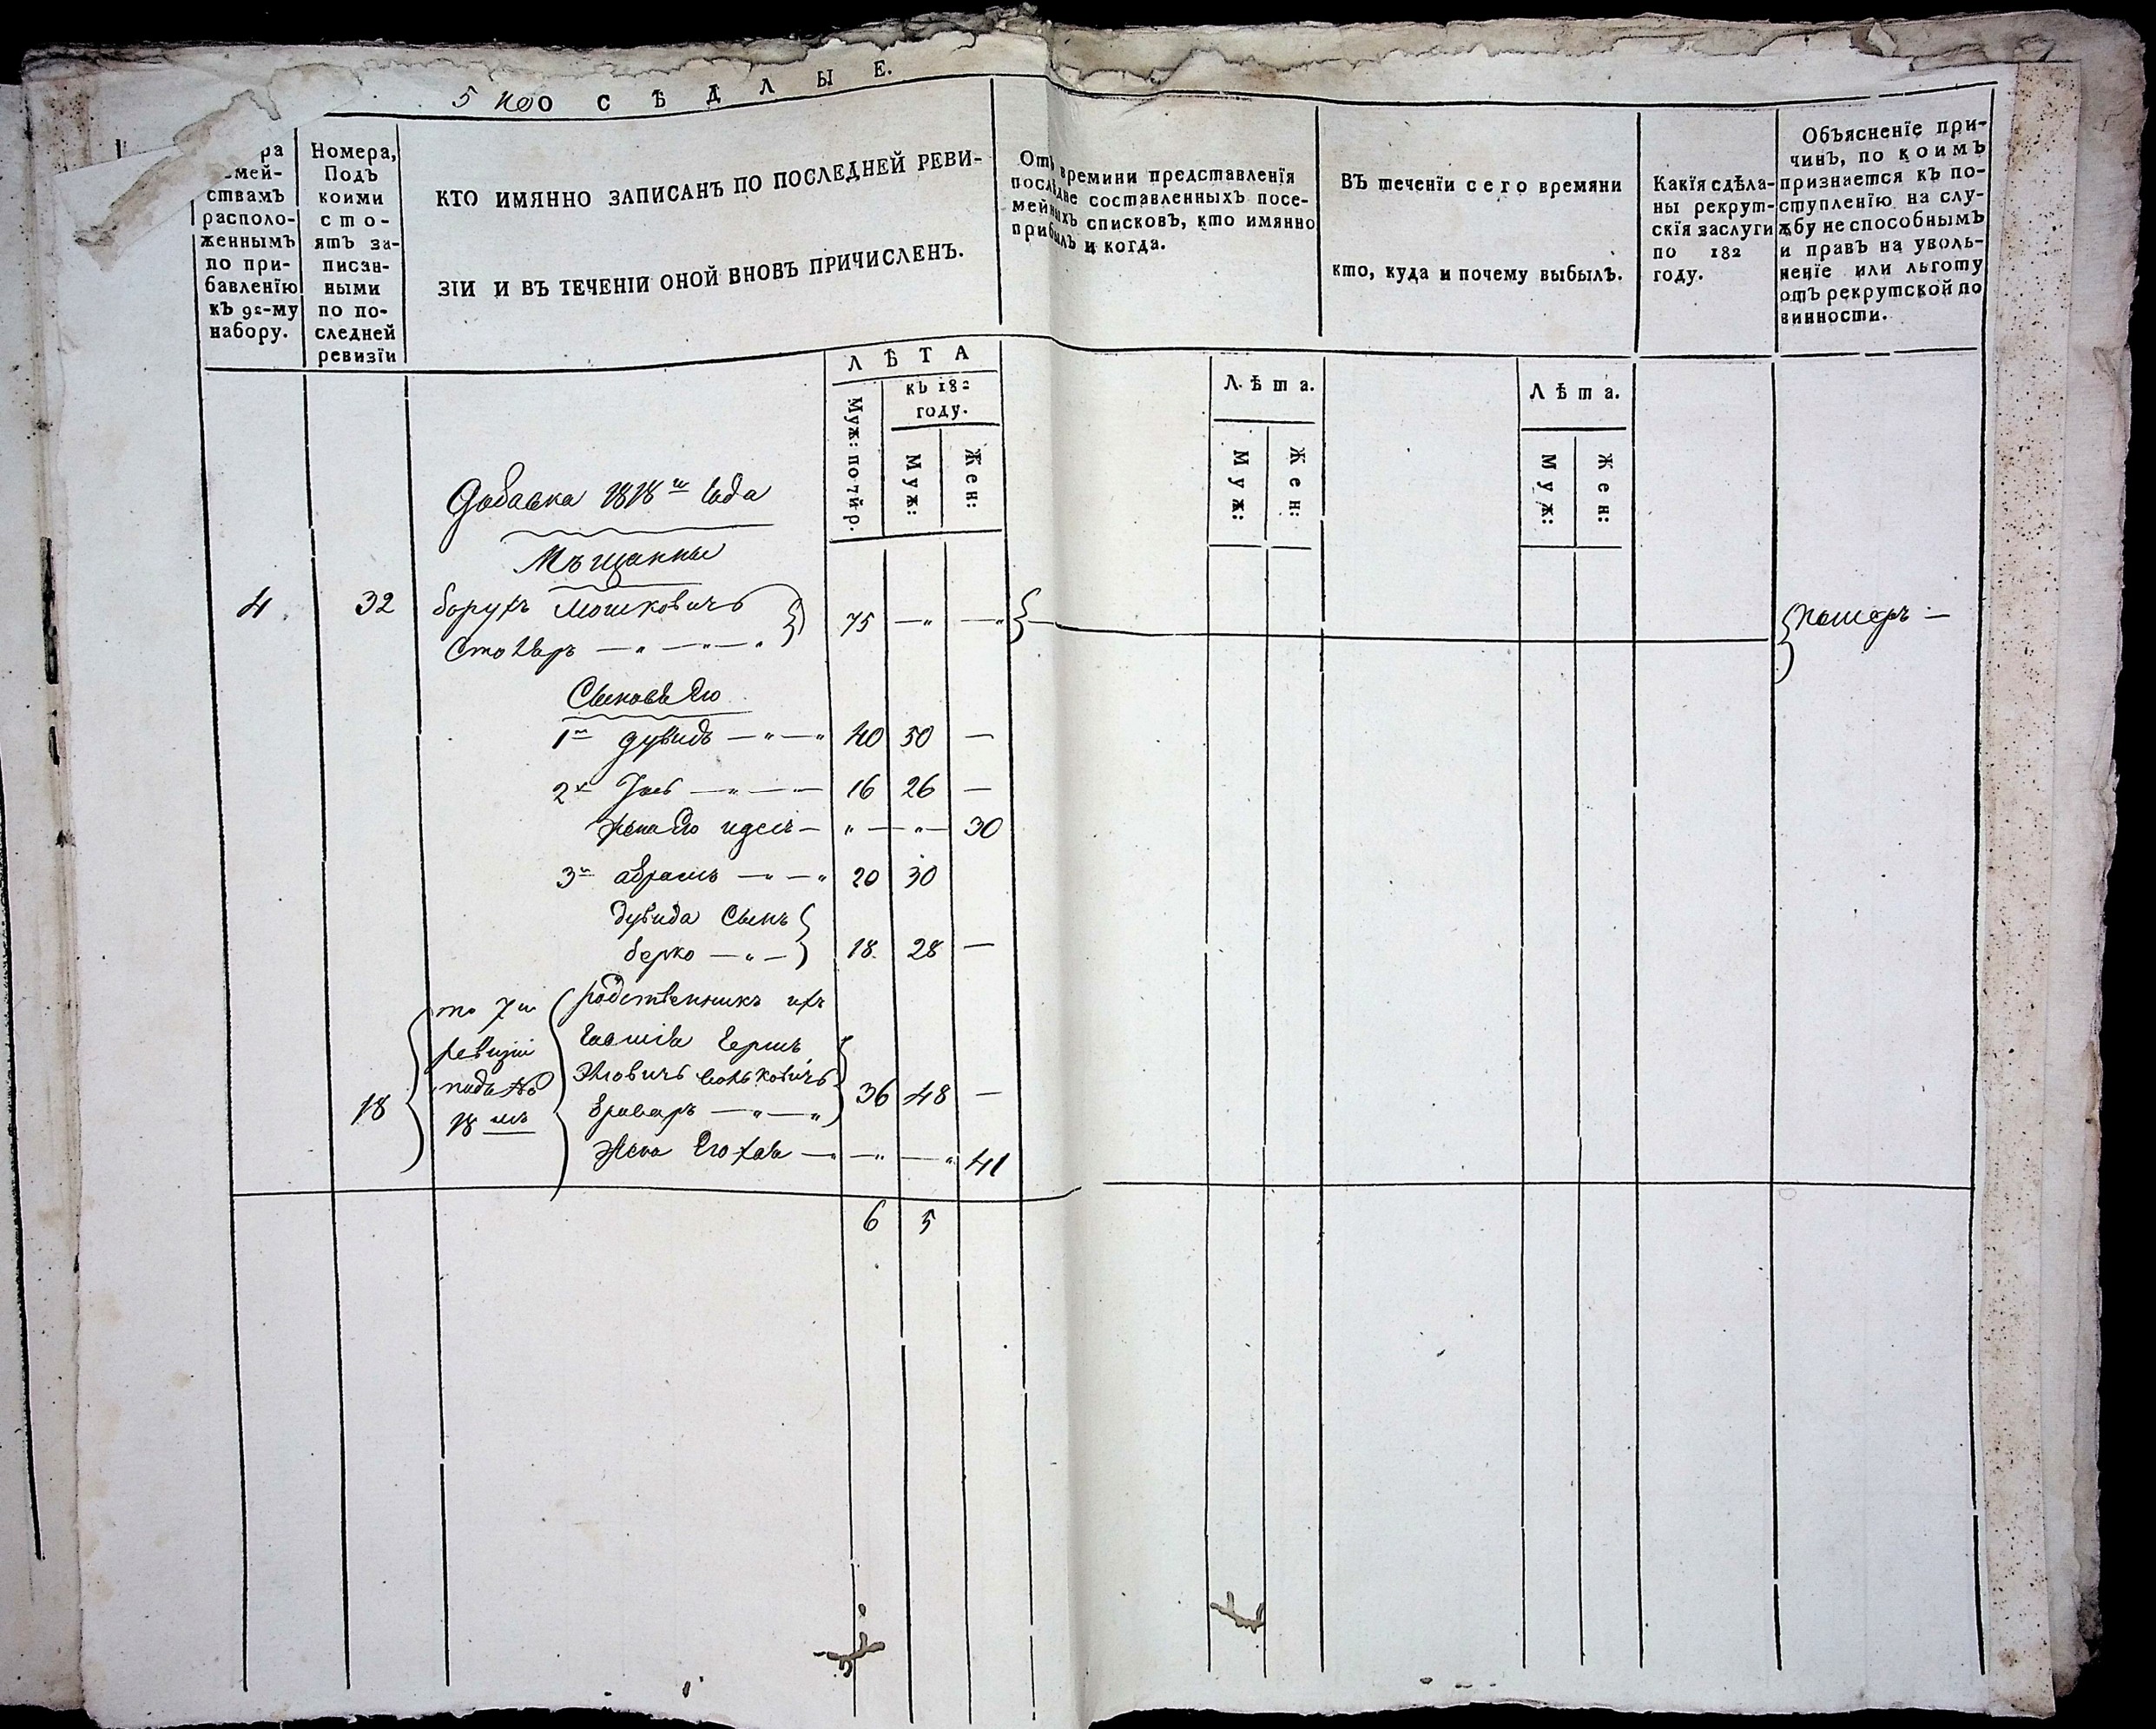 О С Ѣ Д Л Ы Е.
ра
мей-
ствамъ
располо-
женнымъ
по при-
бавленїю
къ 92-му
набору.
Номера,
Подъ
коими
сто-
ятъ за-
писан-
ными
по по-
слѣдней
ревизїи
КТО ИМЯННО ЗАПИСАНЪ ПО ПОСЛѢДНЕЙ РЕВИ-
ЗІИ И ВЪ ТЕЧЕНІИ ОНОЙ ВНОВЪ ПРИЧИСЛЕНЪ.
Л Ѣ Т А
Муж: по 7й р.
къ 182
году.
Муж:
Жен:
Отъ времини представленїя
послѣдне составленныхъ посе-
мейныхъ списковъ, кто имянно
прибылъ и когда.
Л ѣ т а.
Муж:
Жен:
ВЪ теченїи сего времяни
кто, куда и почему выбылъ.
Л ѣ т а.
Муж:
Жен:
Какїя сдѣла-
ны рекрут-
скїя заслуги
по 182
году.
Объясненїе при-
чинъ, по коимъ
признается къ по-
ступленїю на слу-
жбу не способнымъ
и правъ на уволь-
ненїе или льготу
отъ рекрутской по
винности.
Добавка 1818 года
Мѣщанны
4 32 борухъ Мошковичъ
Столяръ — „ — „ — „ 75 — „ — „ померъ —
Сыновья Его
1й дувидъ — „ — „ 40 50 —
2й — „ — 16 26 —
Жена Его — „ — „ — 30
3й абрамъ — „ — „ 20 30
дувида Сынъ
берко — „ — 18 28 —
по 7й
ревизіи
подъ №
18 мъ
родственникъ ихъ
Ершъ
18 36 48 —
Жена Его Хая — — „ — „ 41
6 5